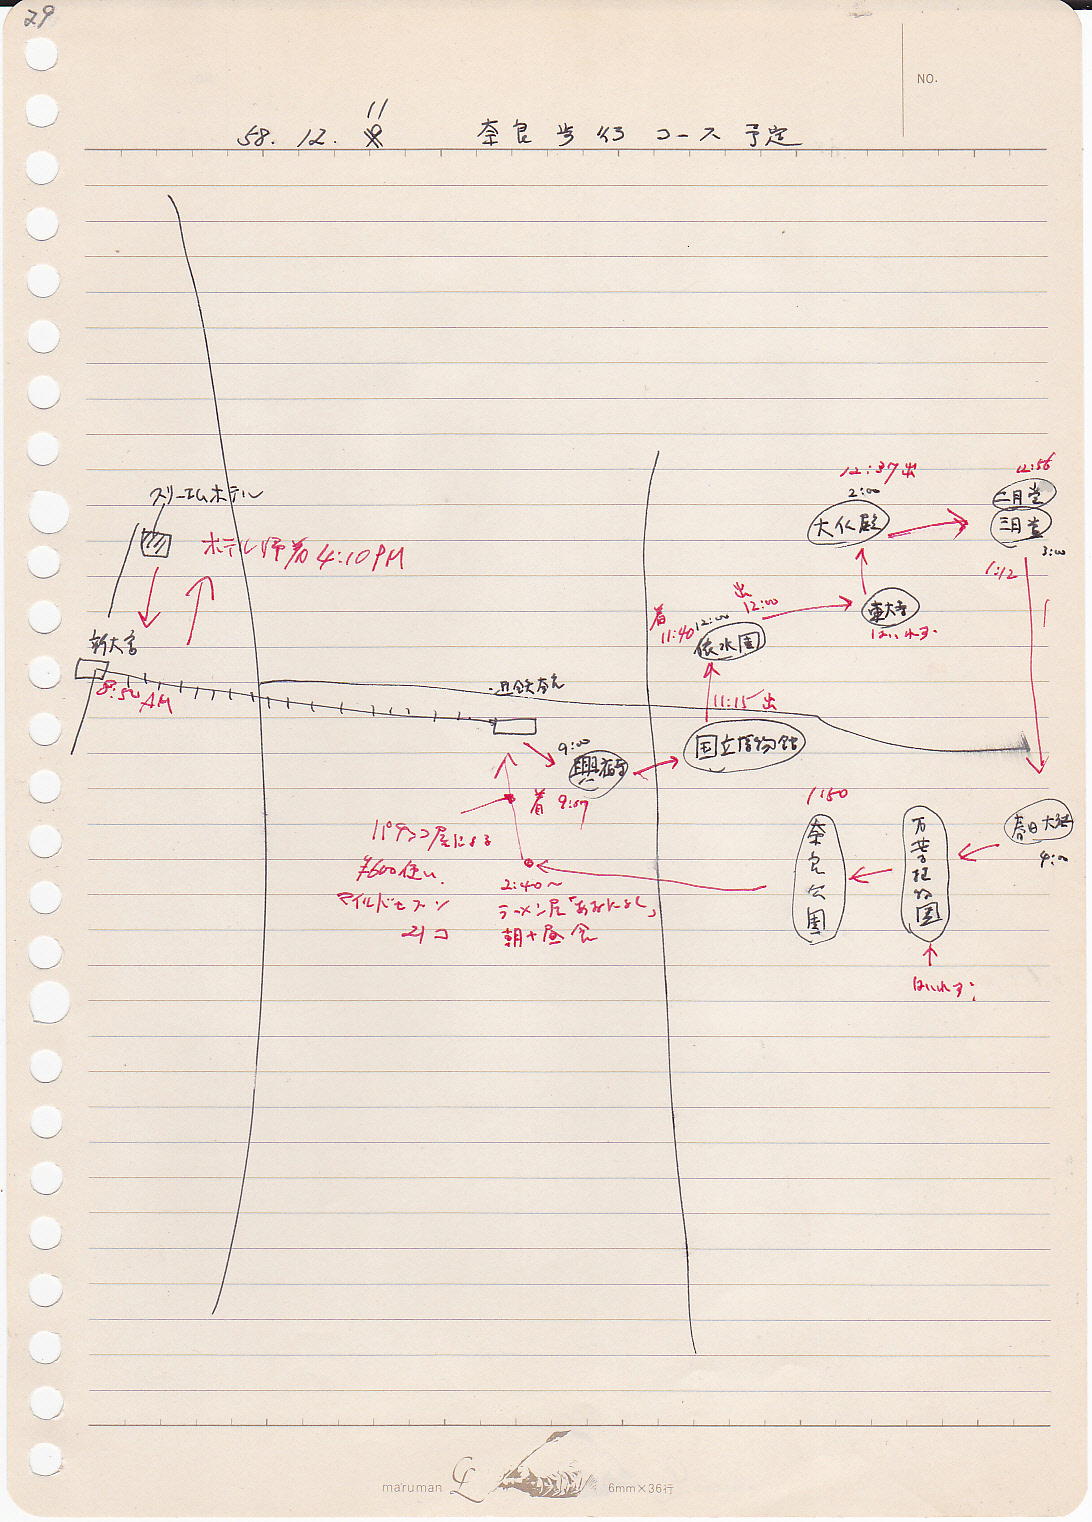 29
NO.
11
58. 12.
奈良歩行コース予定
12:37出
2:00
大仏殿
12:56
二月堂
三月堂
3:00
1:12
スリーエムホテル
ホテル帰着 4:10PM
出
12:00
着
11:40
12:00
依水園
東大寺
はいれず
新大宮
8:50 AM
近鉄奈良
11:15出
国立博物館
9:00
興福寺
着 9:07
1:50
奈良公園
万葉植物園
春日大社
4:00
はいれず
パチンコ屋による
¥600使い
マイルドセブン
21コ
2:40〜
ラーメン屋「あおによし」
朝+昼食
maruman
6mm×36行